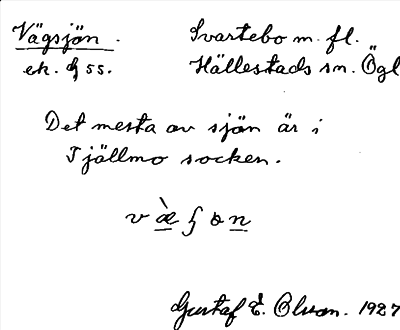 Vägsjön. Svartebo m. fl.
ek. bl 55. Hällestads sn. Ögl
Det mesta av sjön är i
Tjällmo socken.
Gustaf E. Olson. 1927